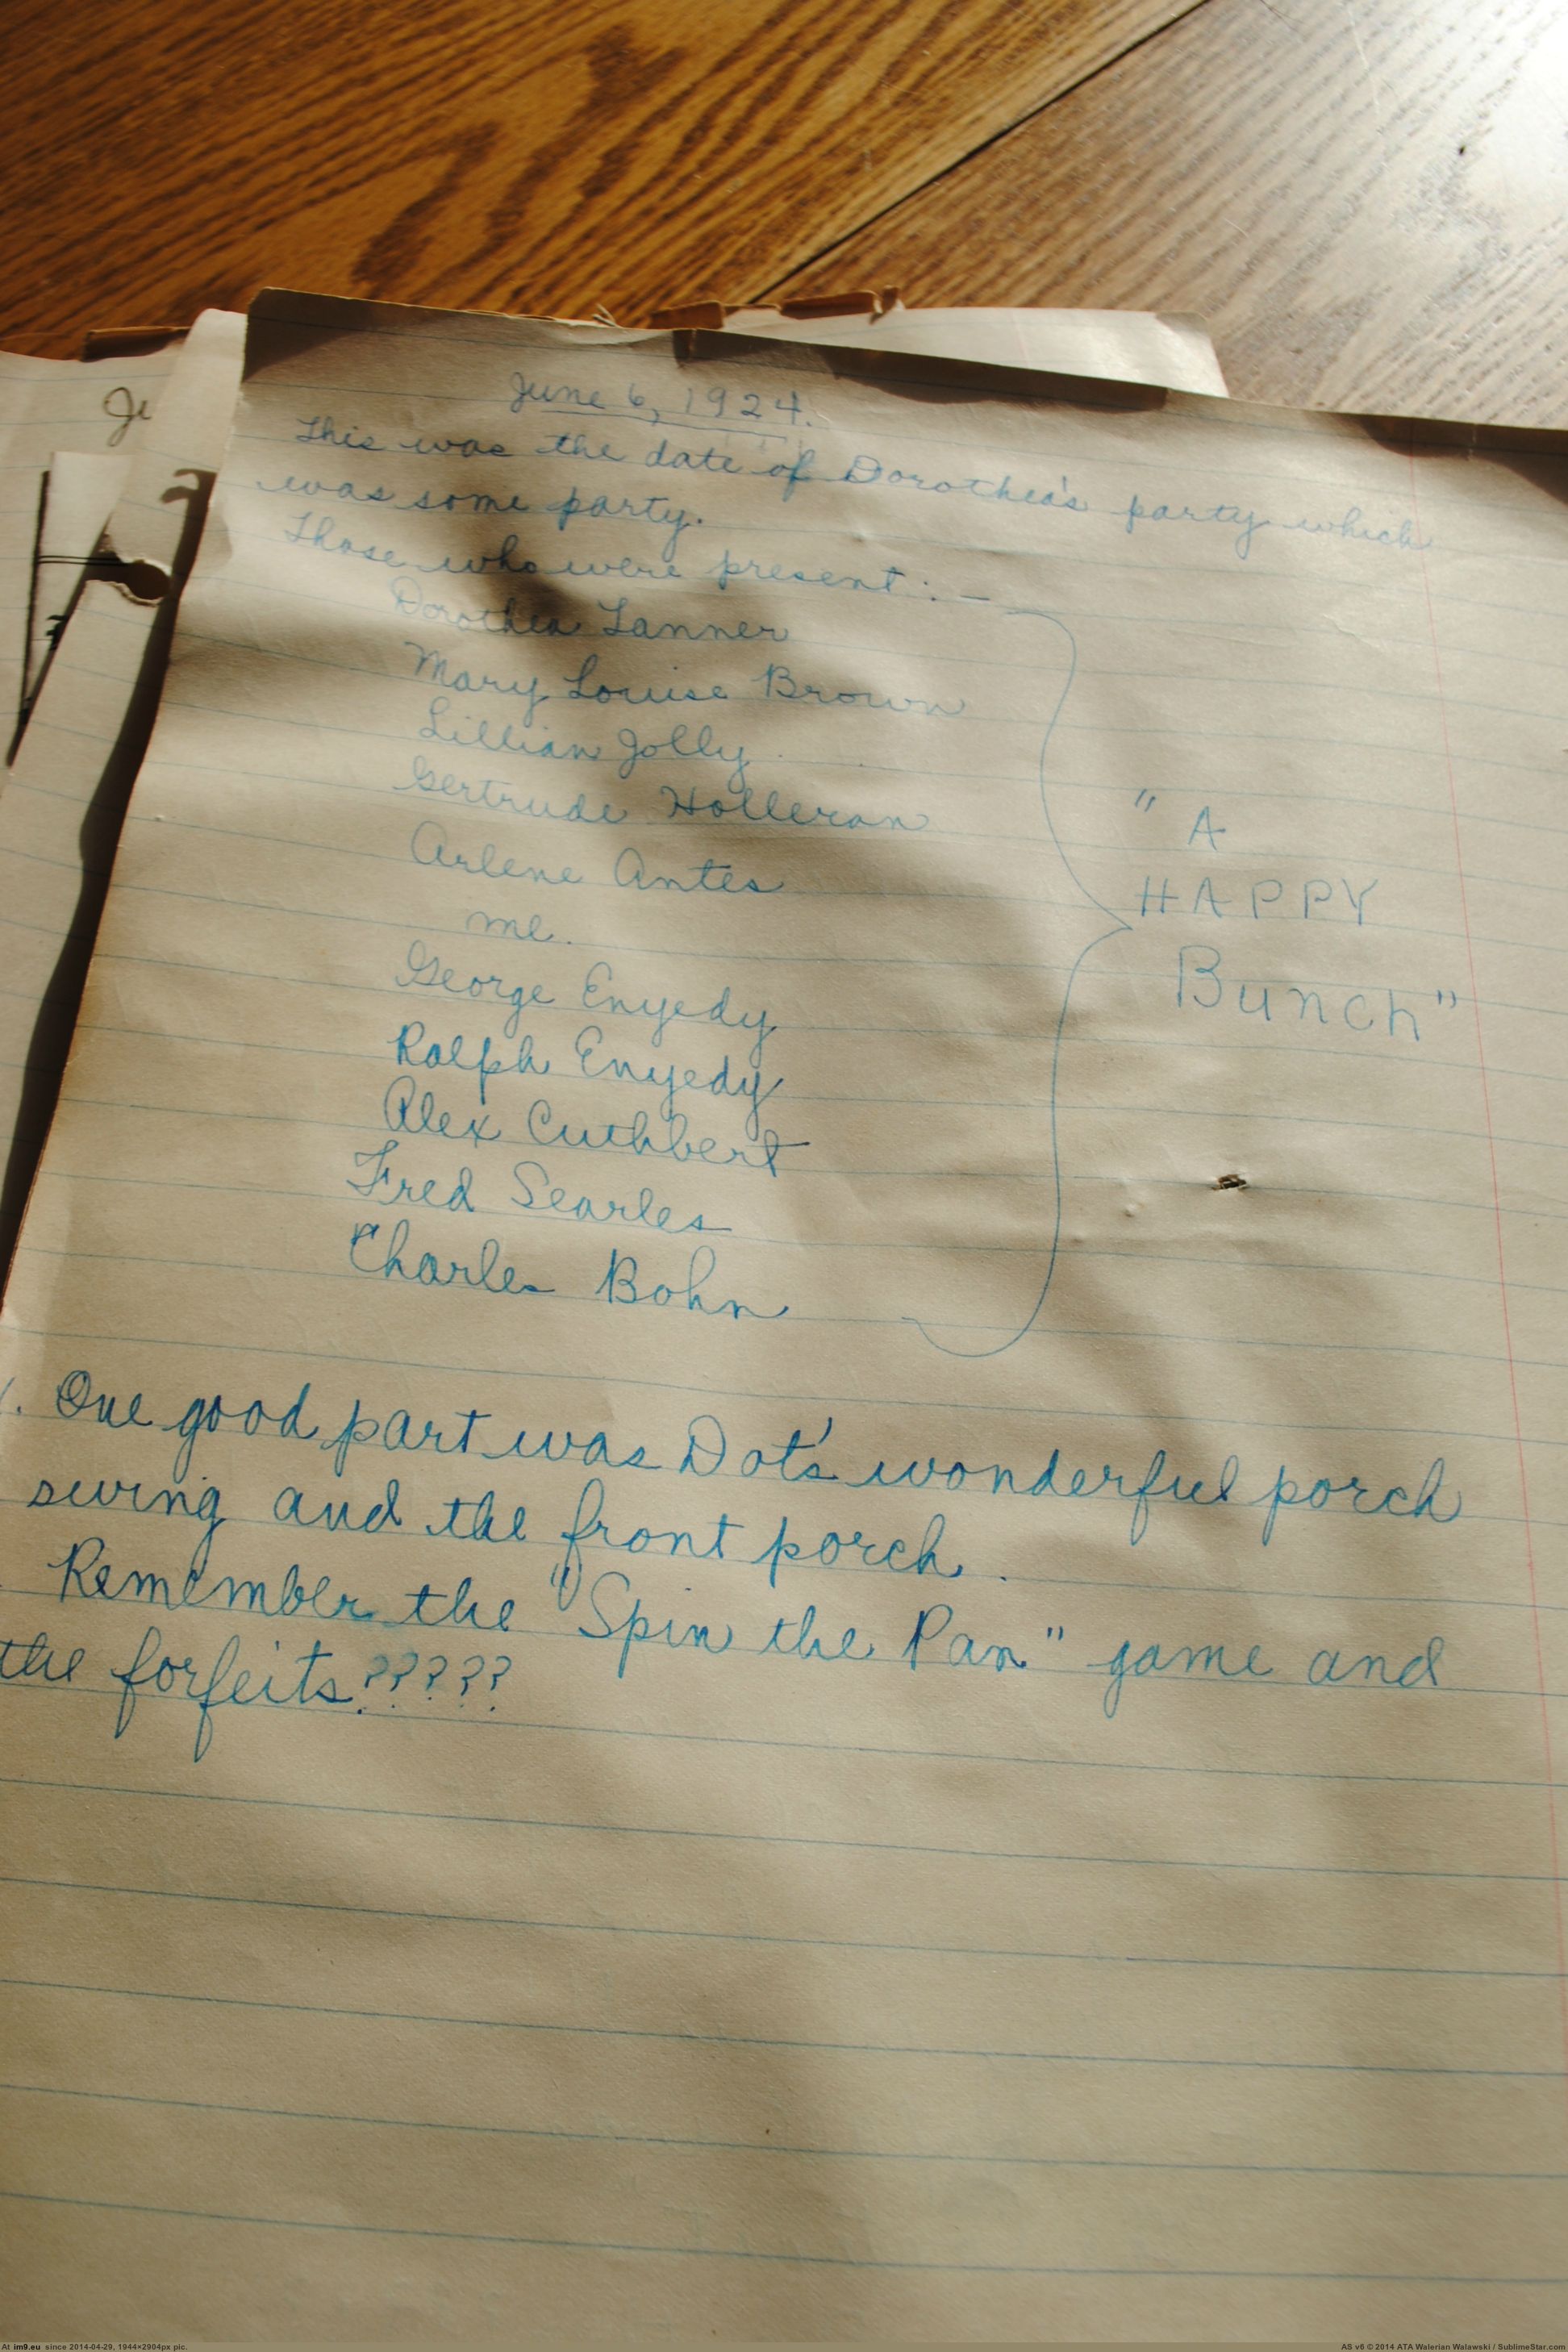 June 6, 1924.
This was the date of Dorothea's party which
was some party.
Those who were present : —
Dorothea Lanner
Mary Louise Brown
Lillian Jolly
Gertrude Holleran
Arlene Antes
me.
George Enyedy
Ralph Enyedy
Alex Cuthbert
Fred Searles
Charles Bohn
" A
HAPPY
Bunch"
One good part was Dot's wonderful porch
swing and the front porch.
Remember the "Spin the Pan" game and
the forfeits?????
At im9.eu since 2014-04-29, 1944×2904px pic.
AS v6 © 2014 ATA Walerian Walawski / SublimeStar.com